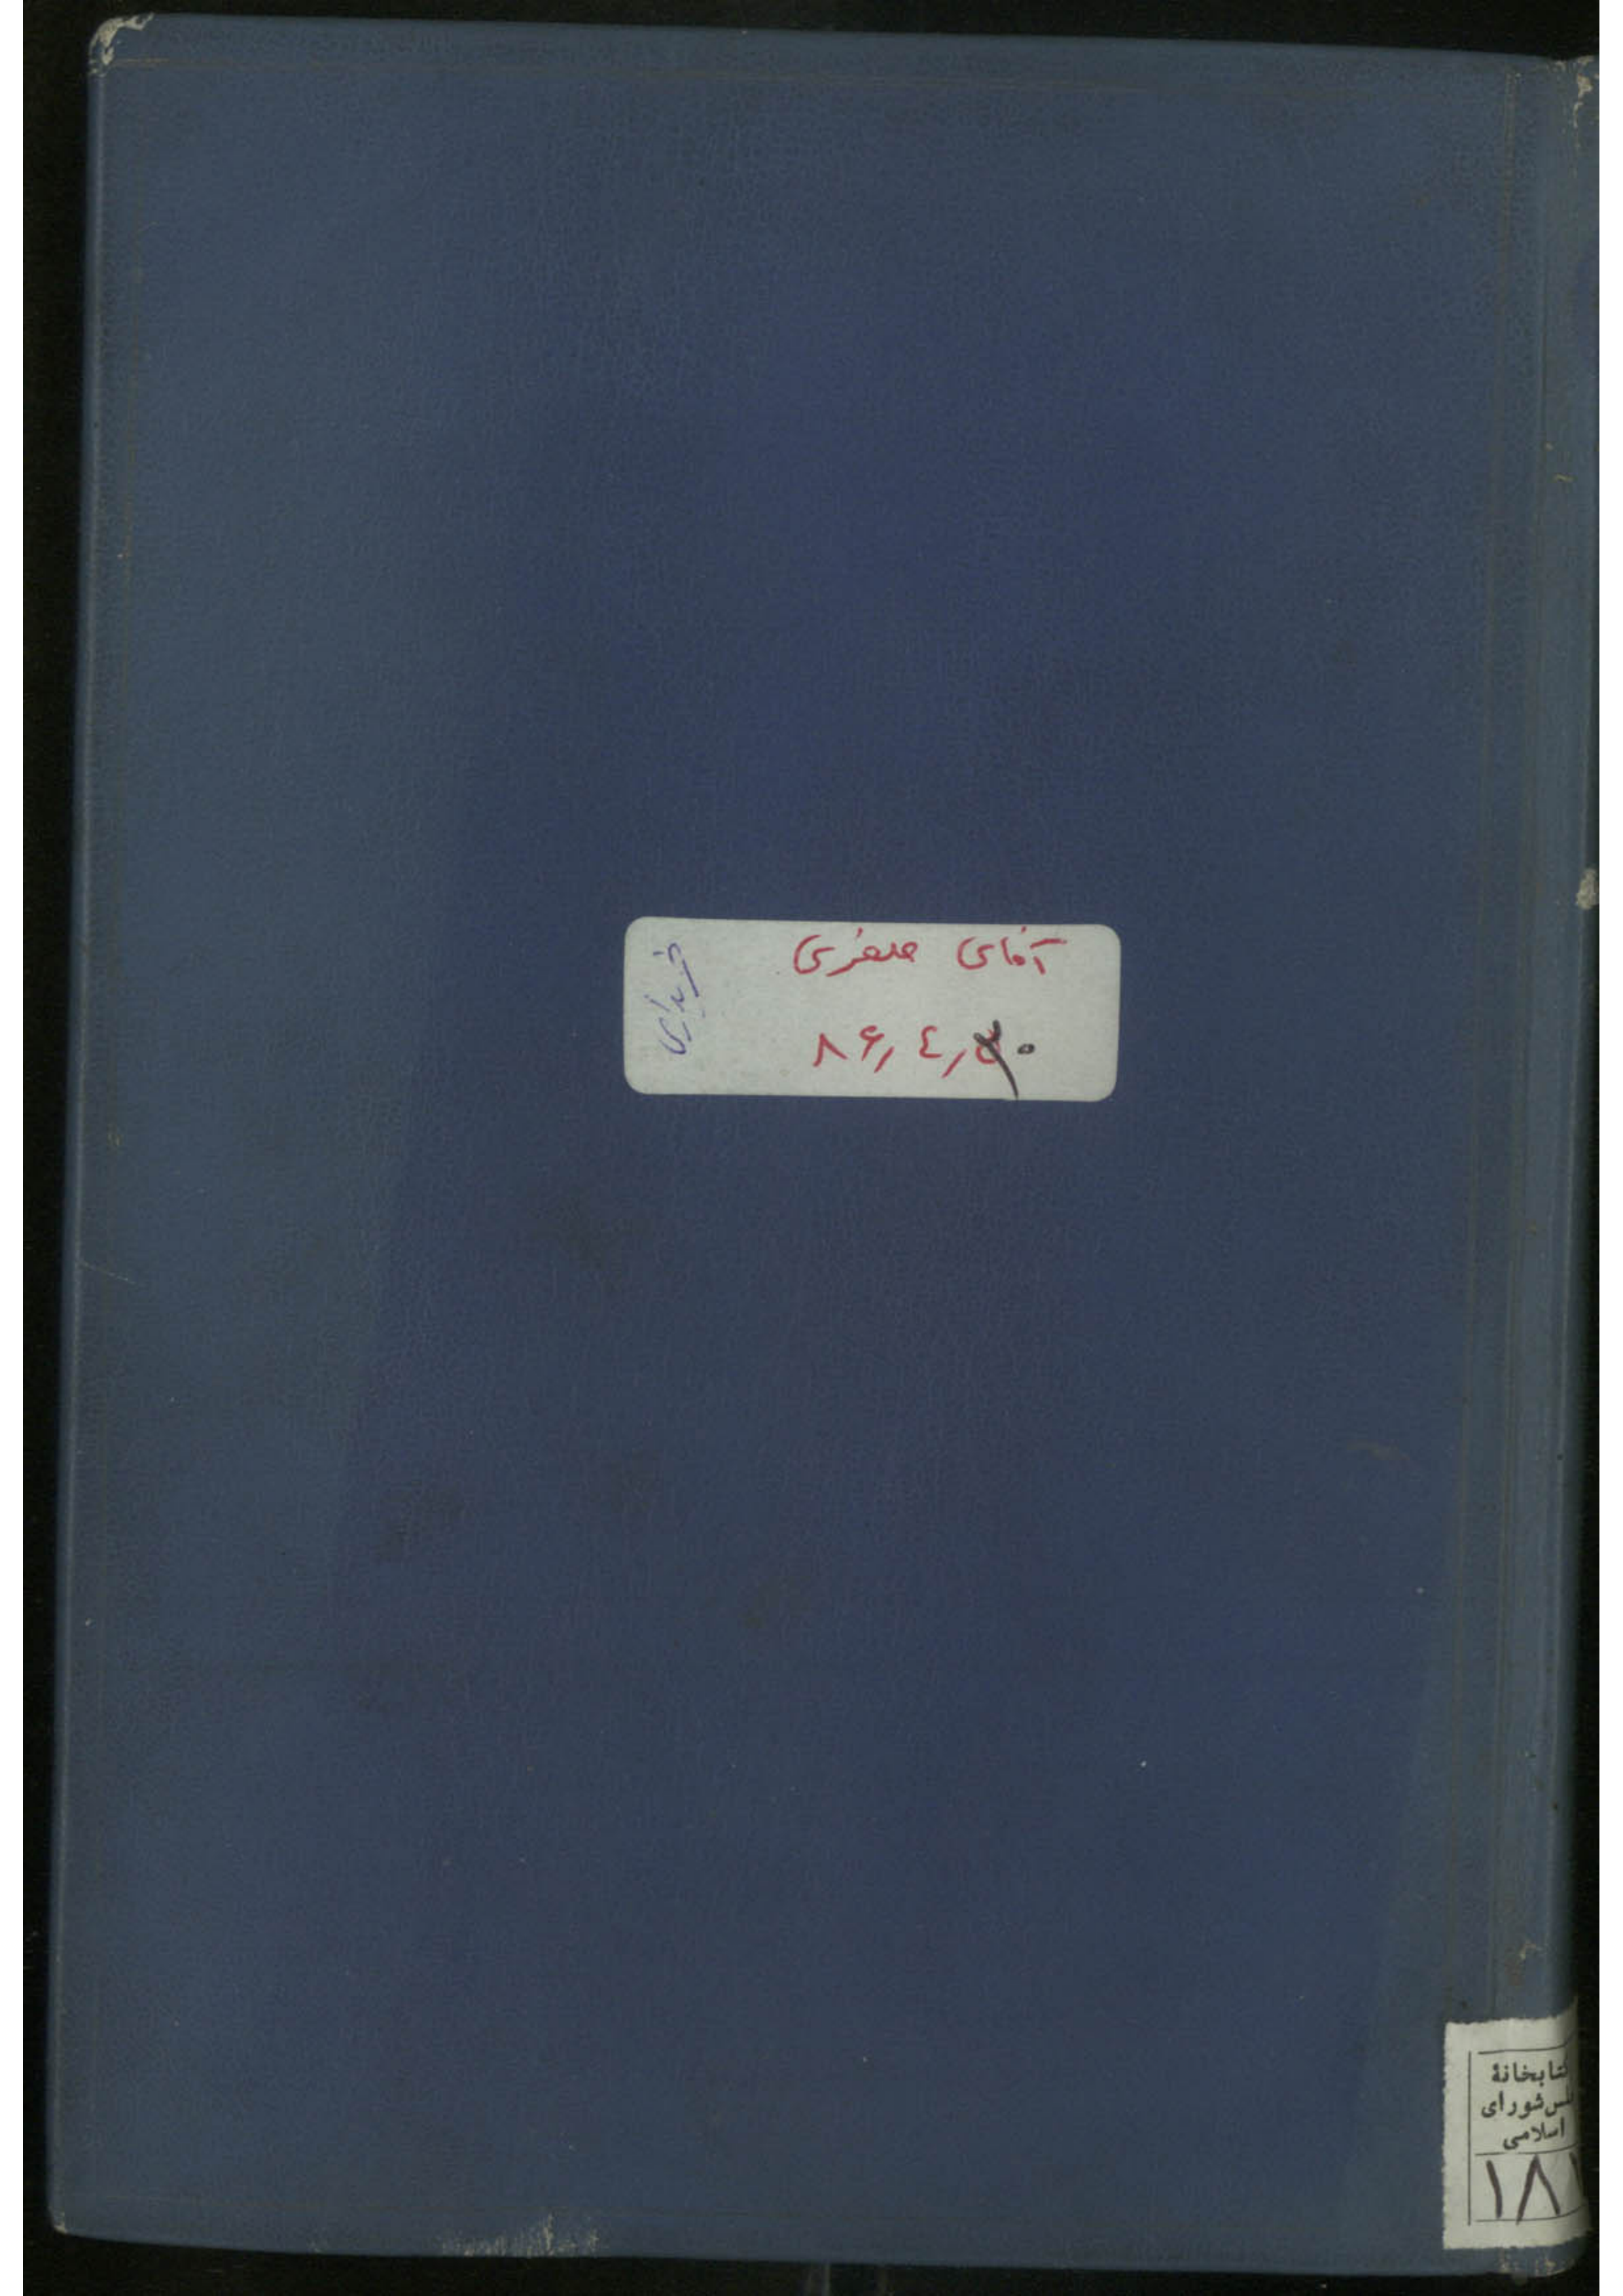 آقای صفری
۸۶٫۴٫۲۰
خریداری
کتابخانهٔ
مجلس شورای
اسلامی
۱۸